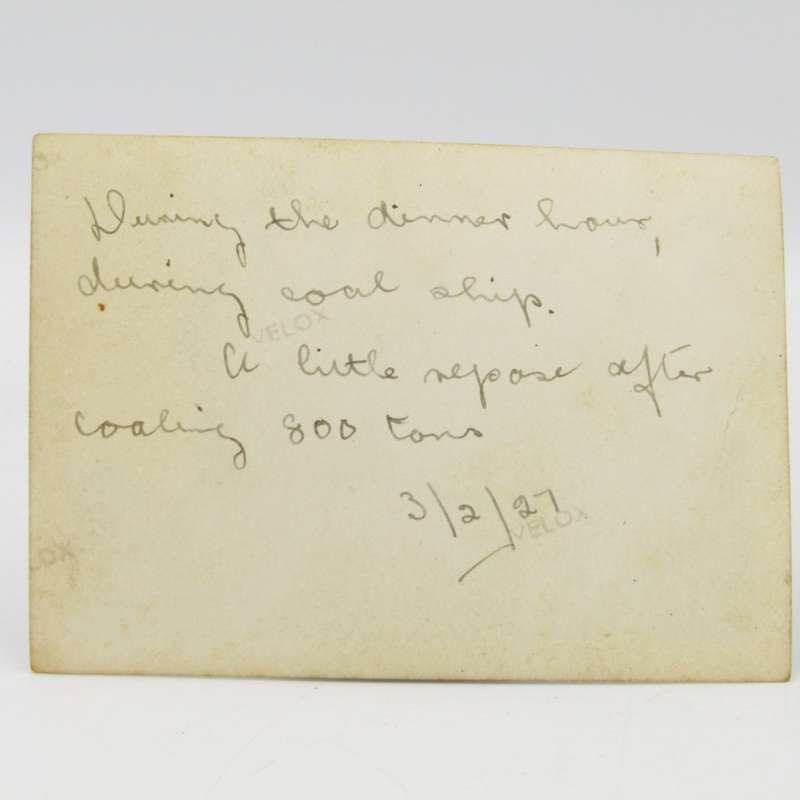 During the dinner hour,
during coal ship.
VELOX
A little repose after
coaling 800 tons
3/2/27
VELOX
LOX